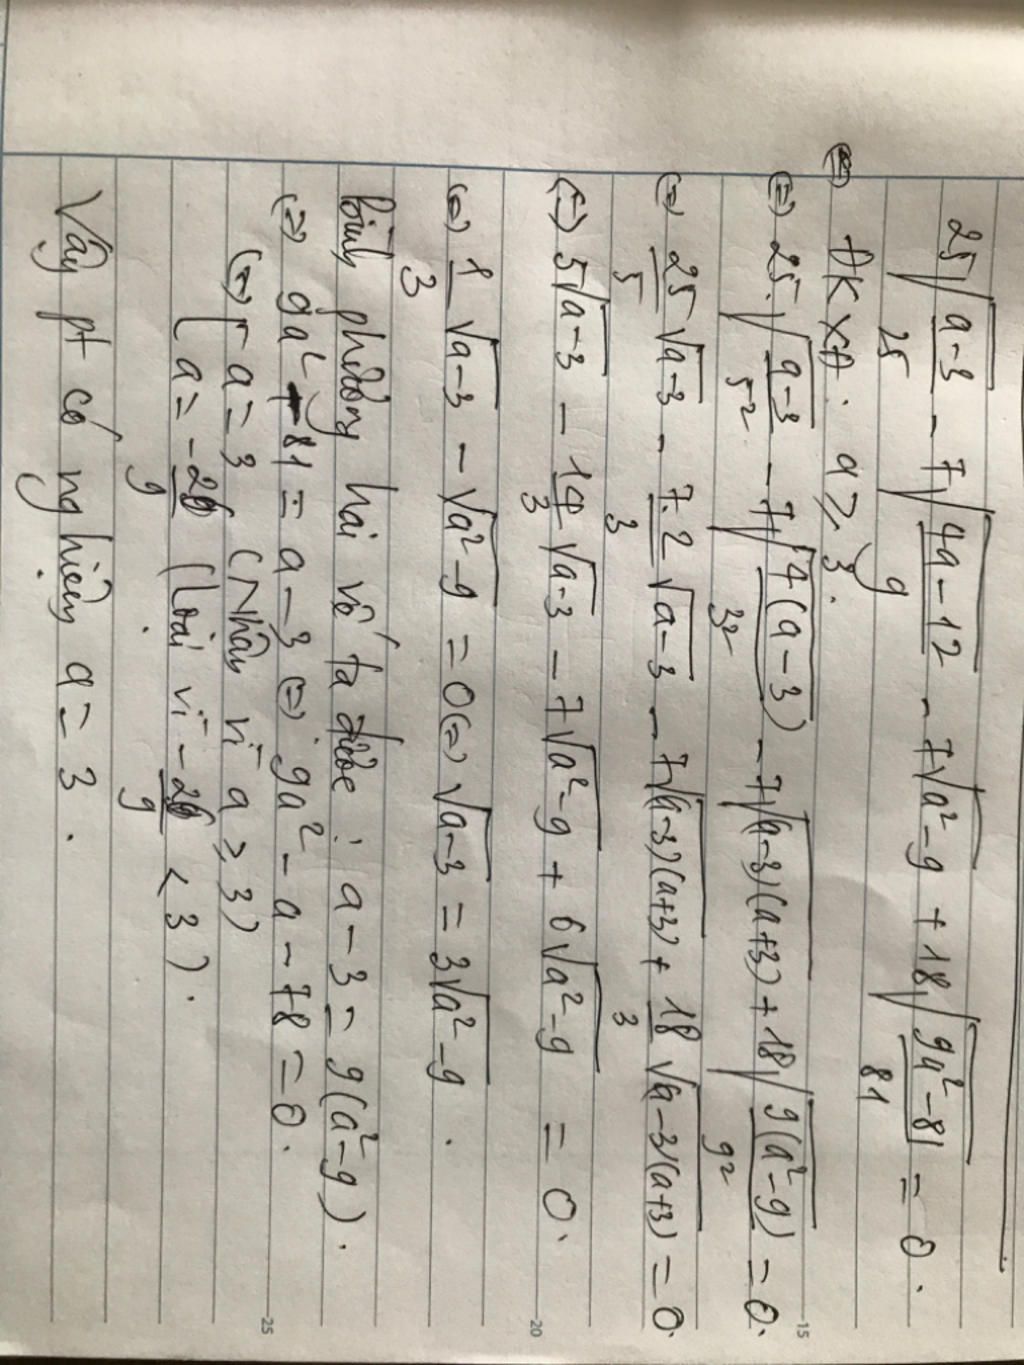 25√((a-3)/25) - 7√((4a-12)/9) - 7√(a²-9) + 18√((9a²-81)/81) = 0.
ĐKXĐ: a ≥ 3.
(=) 25.√((a-3)/5²) - 7√(4(a-3)/3²) - 7√((a-3)(a+3)) + 18√(9(a²-9)/9²) = 0.
(=) 25/5 √(a-3) - 7.2/3 √(a-3) - 7√((a-3)(a+3)) + 18/3 √((a-3)(a+3)) = 0.
(=) 5√(a-3) - 14/3 √(a-3) - 7√(a²-9) + 6√(a²-9) = 0.
(=) 1/3 √(a-3) - √(a²-9) = 0 (=) √(a-3) = 3√(a²-9).
bình phương hai vế ta được: a-3 = 9(a²-9).
(=) 9a² - 81 = a-3 (=) 9a² - a - 78 = 0.
(=) [ a = 3 (Nhận vì a ≥ 3)
[ a = -26/9 (loại vì -26/9 < 3).
Vậy pt có nghiệm a = 3.
15
20
25